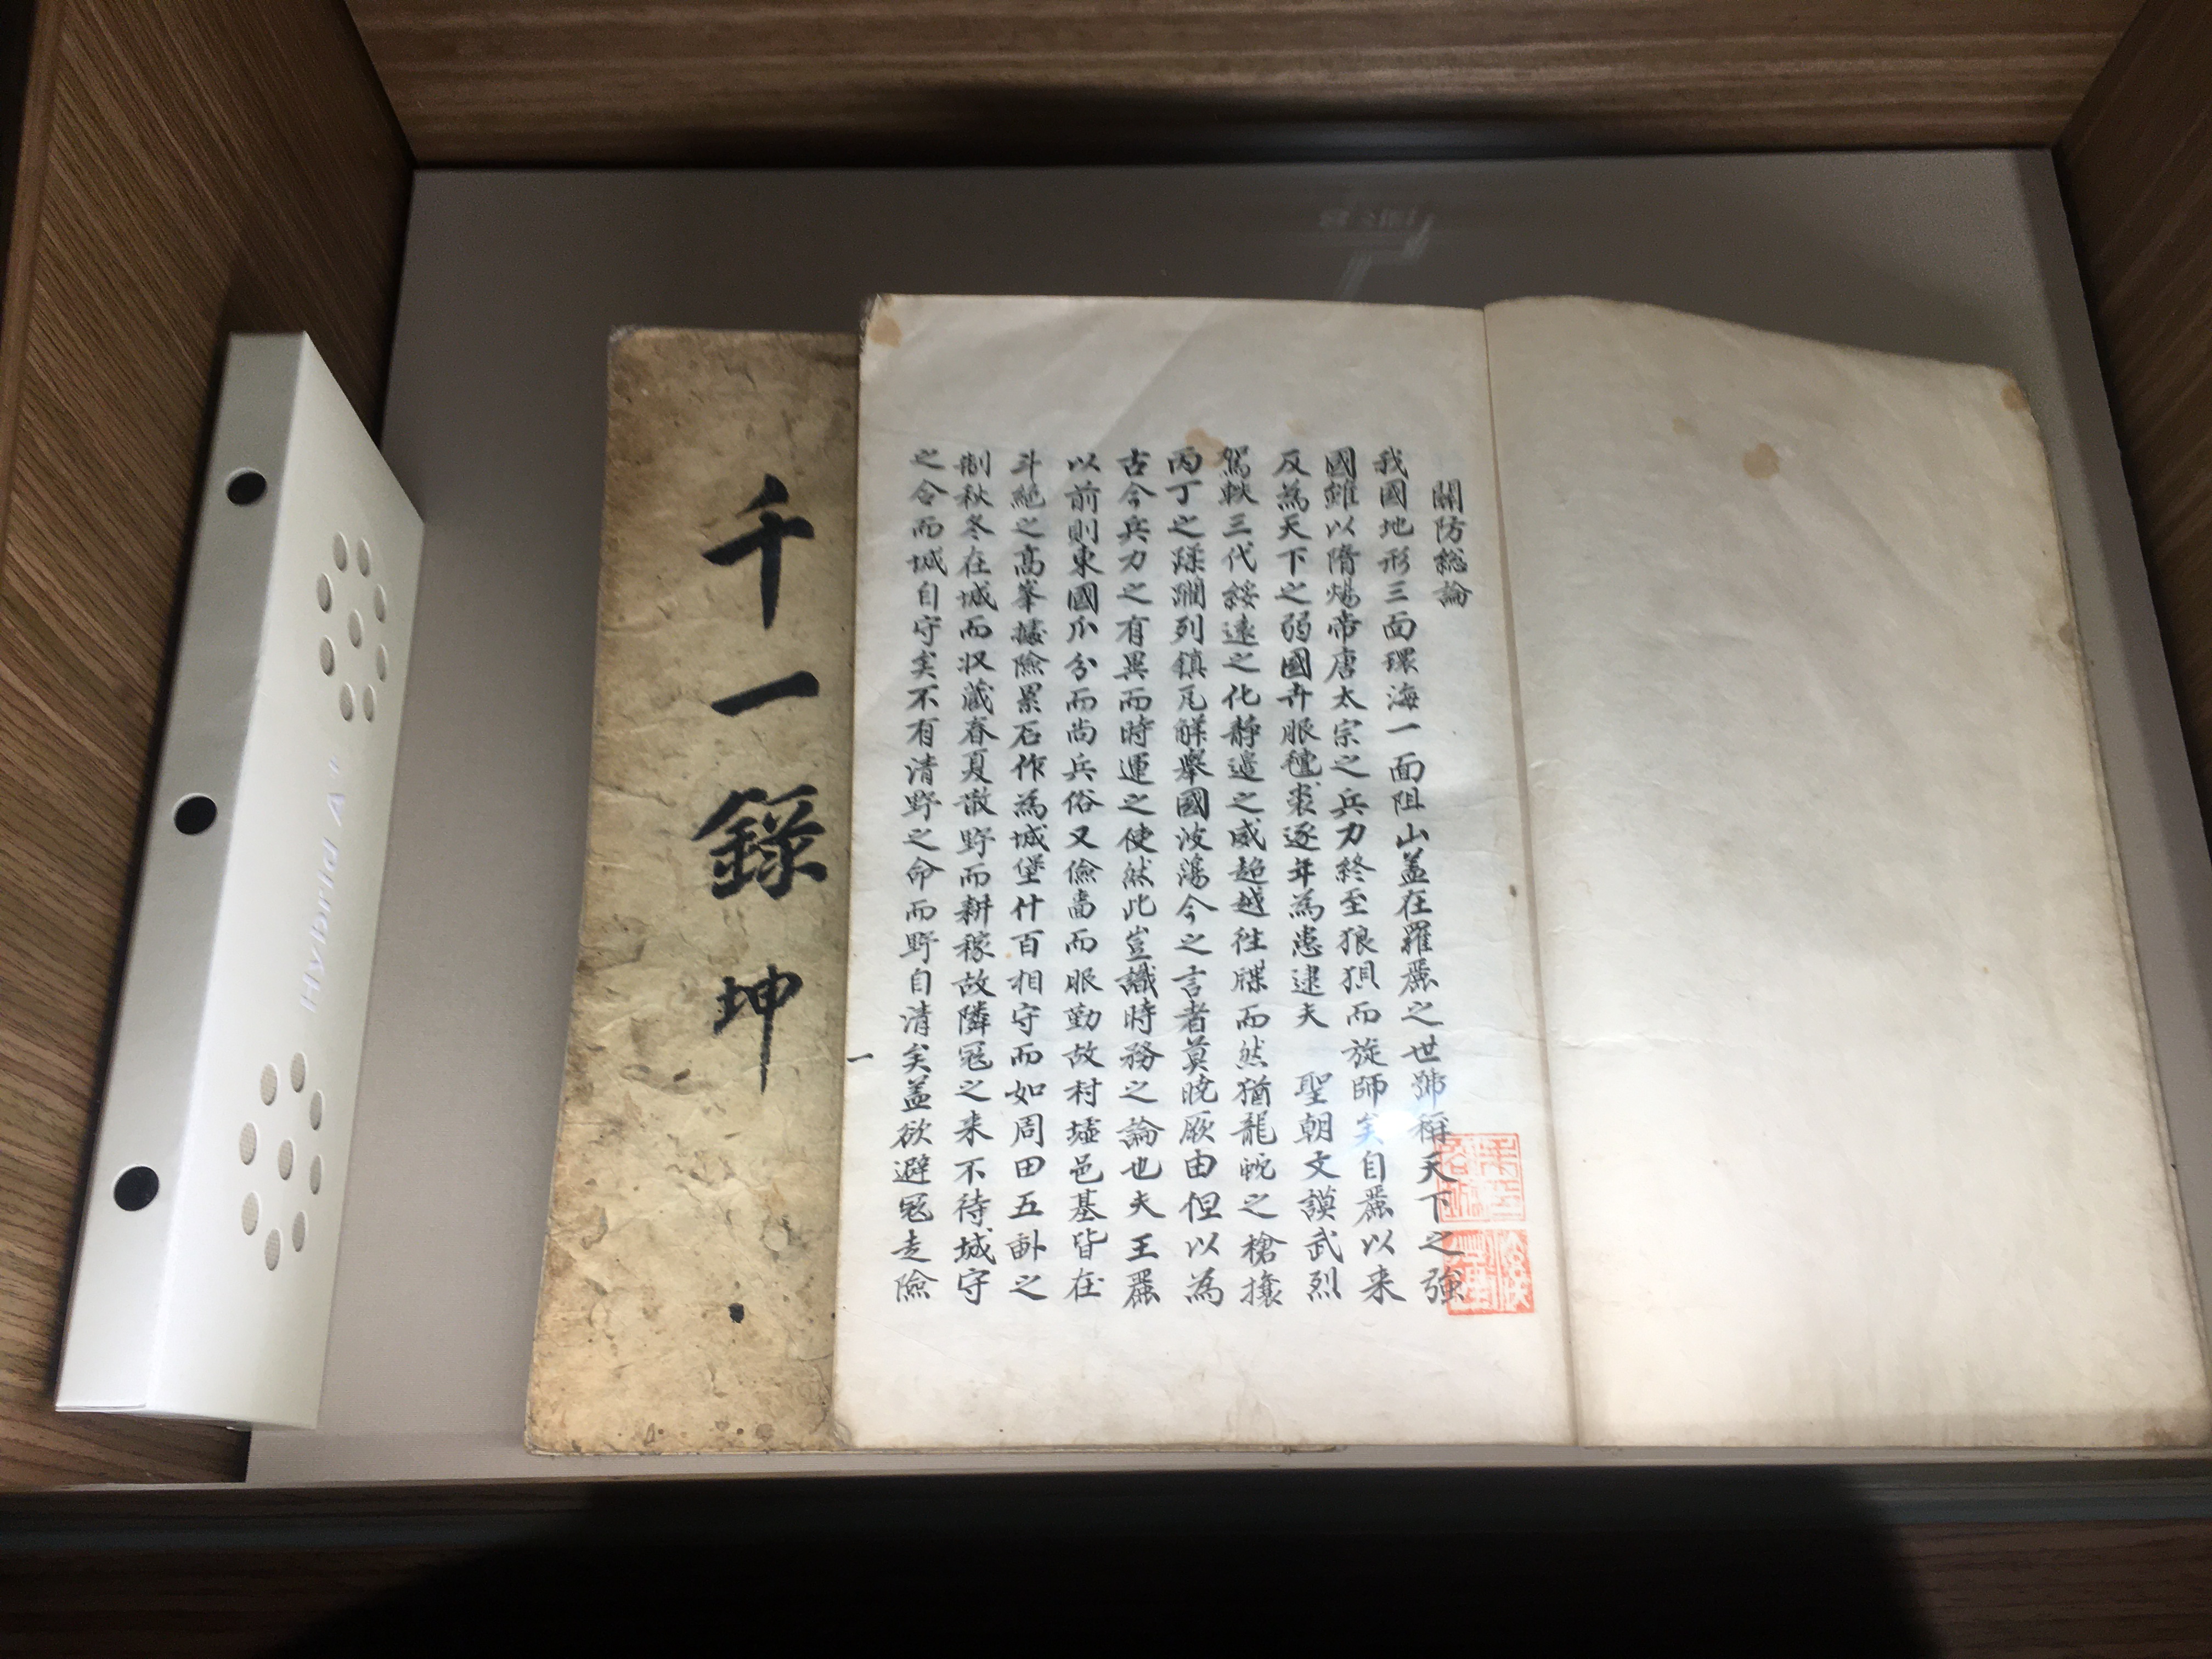 關防総論
我國地形三面環海一面阻山盖在羅麗之世號稱天下之強
國雖以隋煬帝唐太宗之兵力終至狼狽而旋師矣自麗以来
反為天下之弱國卉服氊裘逐年為患逮夫 聖朝文謨武烈
駕軼三代綏遠之化靜邉之威超越徃牒而然猶龍蛇之槍攘
丙丁之蹂躙列鎮瓦解舉國波蕩今之言者莫曉厥由但以為
古今兵力之有異而時運之使然此豈識時務之論也夫王麗
以前則東國瓜分而尚兵俗又儉嗇而服勤故村墟邑基皆在
斗絶之高峯據險累石作為城堡什百相守而如周田五畒之
制秋冬在城而収藏春夏散野而耕稼故隣冦之来不待城守
之令而城自守矣不有清野之命而野自清矣盖欲避冦走險
一
千一錄 坤
Hybrid A+